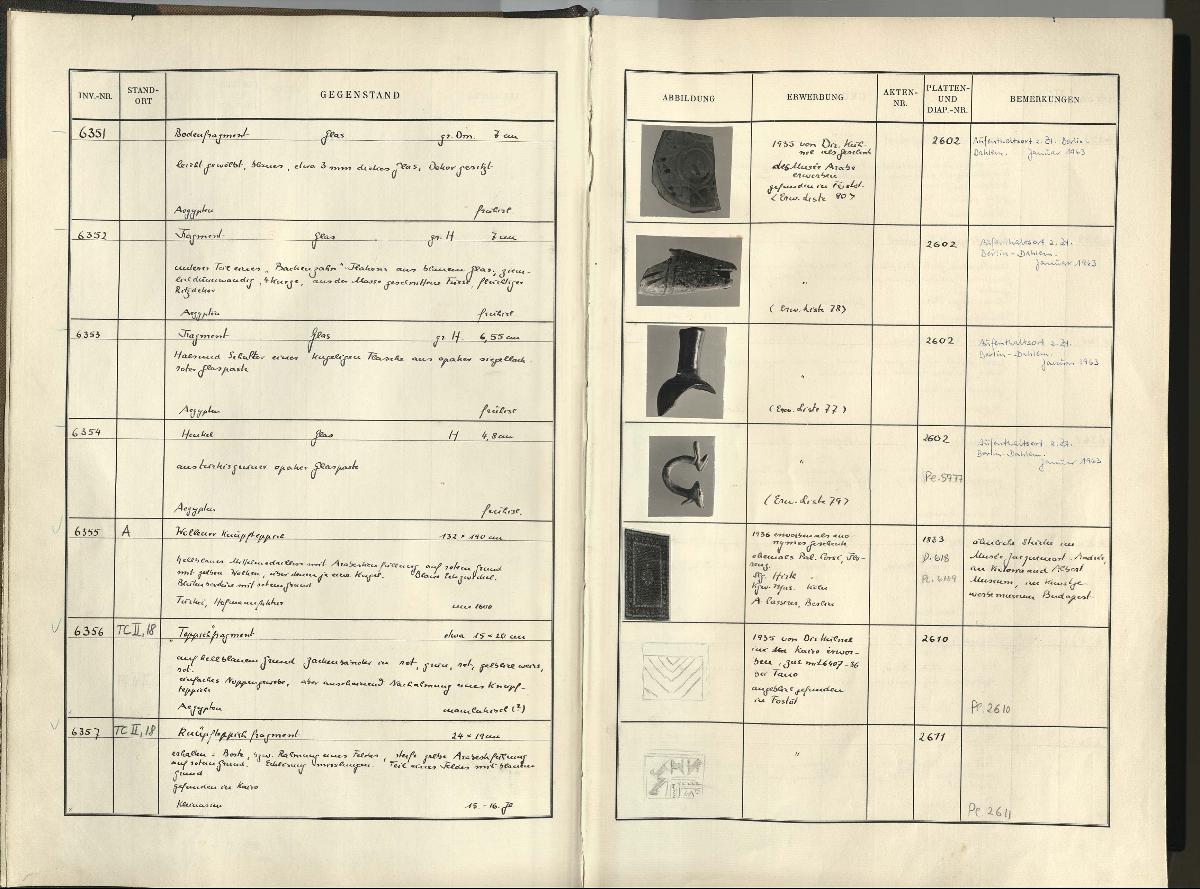 INV.-NR.
STAND-
ORT
GEGENSTAND
6351
Bodenfragment Glas gr. Dm. 7 cm
leicht gewölbt, blaues, etwa 3 mm dickes Glas, Dekor geritzt
Aegypten frühisl.
6352
Fragment Glas gr. H 7 cm
unterer Teil eines "Backenzahn"-Flakons aus blauem Glas, ziem-
lich dünnwandig, 4 kurze, aus der Masse geschnittene Füsse, flüchtiger
Ritzdekor
Aegypten frühisl.
6353
Fragment Glas gr. H. 6,55 cm
Hals und Schulter einer kugeligen Flasche aus opaker siegellack-
roter Glaspaste
Aegypten frühisl.
6354
Henkel Glas H 4,8 cm
aus türkisgrüner opaker Glaspaste
Aegypten frühisl.
6355 A
Wollener Knüpfteppich 132 x 190 cm
hellblaues Mittelmedaillon mit Arabeskenfüllung auf rotem Grund
mit gelben Wolken, über denen je eine Kugel. Blaue Eckzwickel.
Blütenbordüre mit rotem Grund
Türkei, Hofmanufaktur um 1600
6356 TC II, 18
"Teppich"fragment etwa 15 x 20 cm
auf hellblauem Grund Zackenbänder in rot, grün, rot, gelb
rot.
einfaches Noppengewebe, aber anscheinend Nachahmung eines Knüpf-
teppichs
Aegypten mamlukisch (?)
6357 TC II, 18
Knüpfteppichfragment 24 x 19 cm
erhalten: Borte, bzw. Rahmung eines Feldes, steife gelbe Arabeskfüllung
auf rotem Grund. Teil eines Feldes mit blauem
Grund
gefunden in Kairo
Kleinasien 15.-16. Jh
ABBILDUNG
ERWERBUNG
AKTEN-
NR.
PLATTEN-
UND
DIAP.-NR.
BEMERKUNGEN
1935 von Dir. Küh-
nel als Geschenk
des Musée Arabe
erworben
gefunden in Fustat.
(Erw. Liste 80)
2602
Aufenthaltsort z. Zt. Berlin-
Dahlem. Januar 1963
"
(Erw. Liste 78)
2602
Aufenthaltsort z. Zt.
Berlin-Dahlem.
Januar 1963
"
(Erw. Liste 77)
2602
Aufenthaltsort z. Zt.
Berlin-Dahlem.
Januar 1963
"
(Erw. Liste 79)
2602
Pe. 5977
Aufenthaltsort z. Zt.
Berlin-Dahlem.
Januar 1963
1936 erworben als ano-
nymes Geschenk
ehemals Pal. Corsi, Flo-
renz.
Slg. Hirth
Köln
A. Cassirer, Berlin
1533
P. 618
Pe. 6109
ähnliche Stücke im
Musée Jacquemart-André,
im Victoria and Albert
Museum, im Kunstge-
werbemuseum Budapest
1935 von Dir. Kühnel
in Kairo erwor-
ben, zus. mit 6407-36
bei Tano
angeblich gefunden
in Fostat
2610
Pe. 2610
"
2611
Pe. 2611